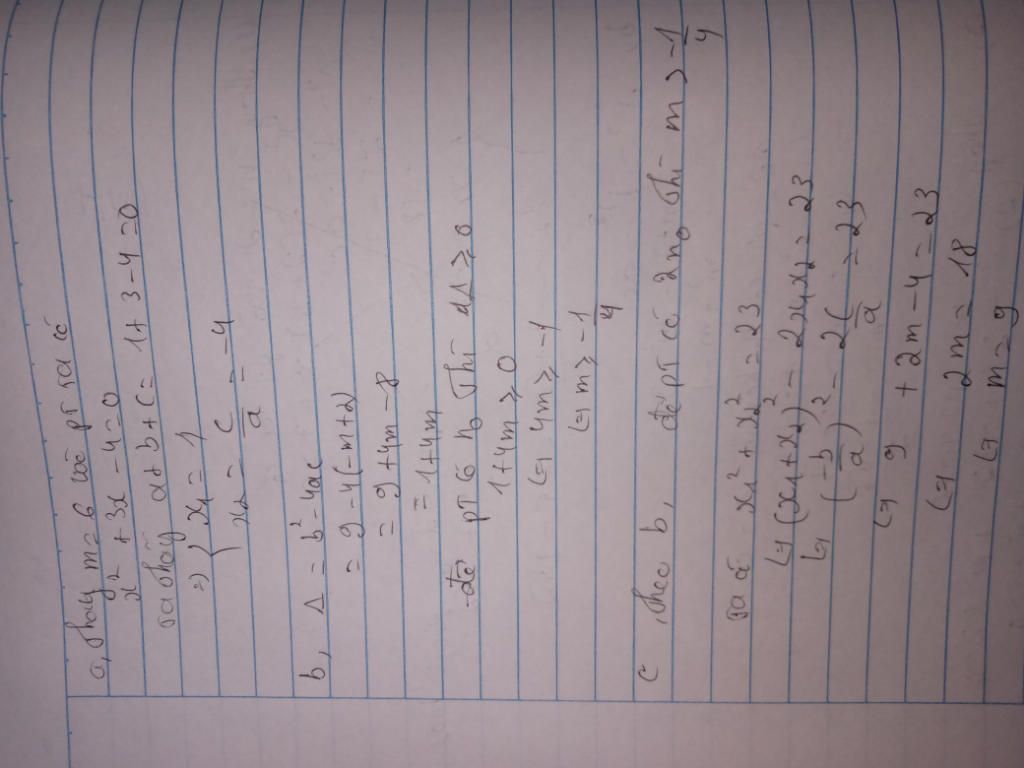 a, thay m = 6 vào pt ta có
x² + 3x - 4 = 0
ta thấy a + b + c = 1 + 3 - 4 = 0
=> { x₁ = 1
x₂ = c/a = -4
b, Δ = b² - 4ac
= 9 - 4(-m+2)
= 9 + 4m - 8
= 1 + 4m
để pt có n₀ thì Δ ≥ 0
1 + 4m ≥ 0
<=> 4m ≥ -1
<=> m ≥ -1/4
c, theo b, để pt có 2 n₀ thì m > -1/4
ta có x₁² + x₂² = 23
<=> (x₁ + x₂)² - 2x₁x₂ = 23
<=> (-b/a)² - 2c/a = 23
<=> 9 + 2m - 4 = 23
<=> 2m = 18
<=> m = 9